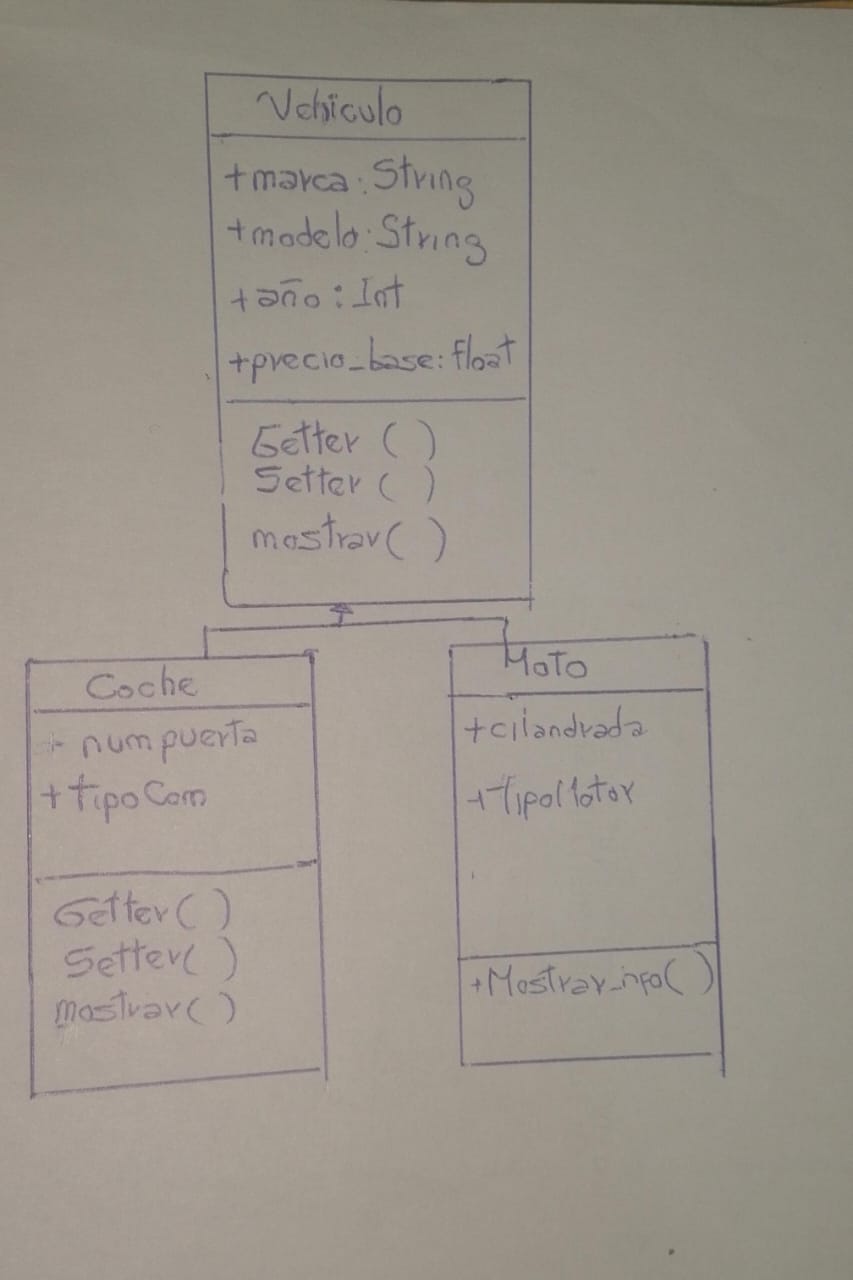 Vehiculo
+marca: String
+modelo: String
+año: Int
+precio_base: float
Getter ( )
Setter ( )
mostrar ( )
Coche
+ numpuerta
+ tipoCom
Getter ( )
Setter ( )
mostrar ( )
Moto
+cilandrada
+TipoMotor
+Mostrar_info( )